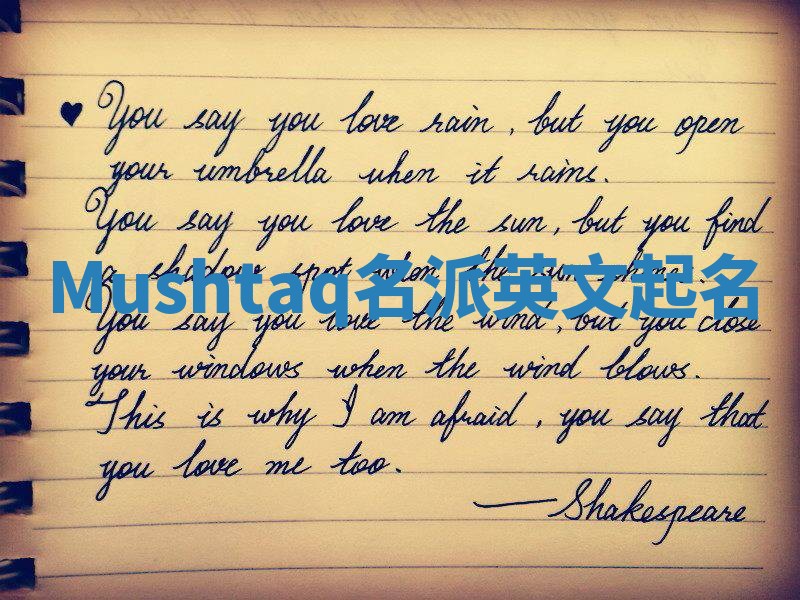 ♥ You say you love rain, but you open
your umbrella when it rains.
You say you love the sun, but you find
a shadow spot when the sun shines.
Mushtaq名派英文起名
You say you love the wind, but you close
your windows when the wind blows.
This is why I am afraid, you say that
you love me too.
—Shakespeare